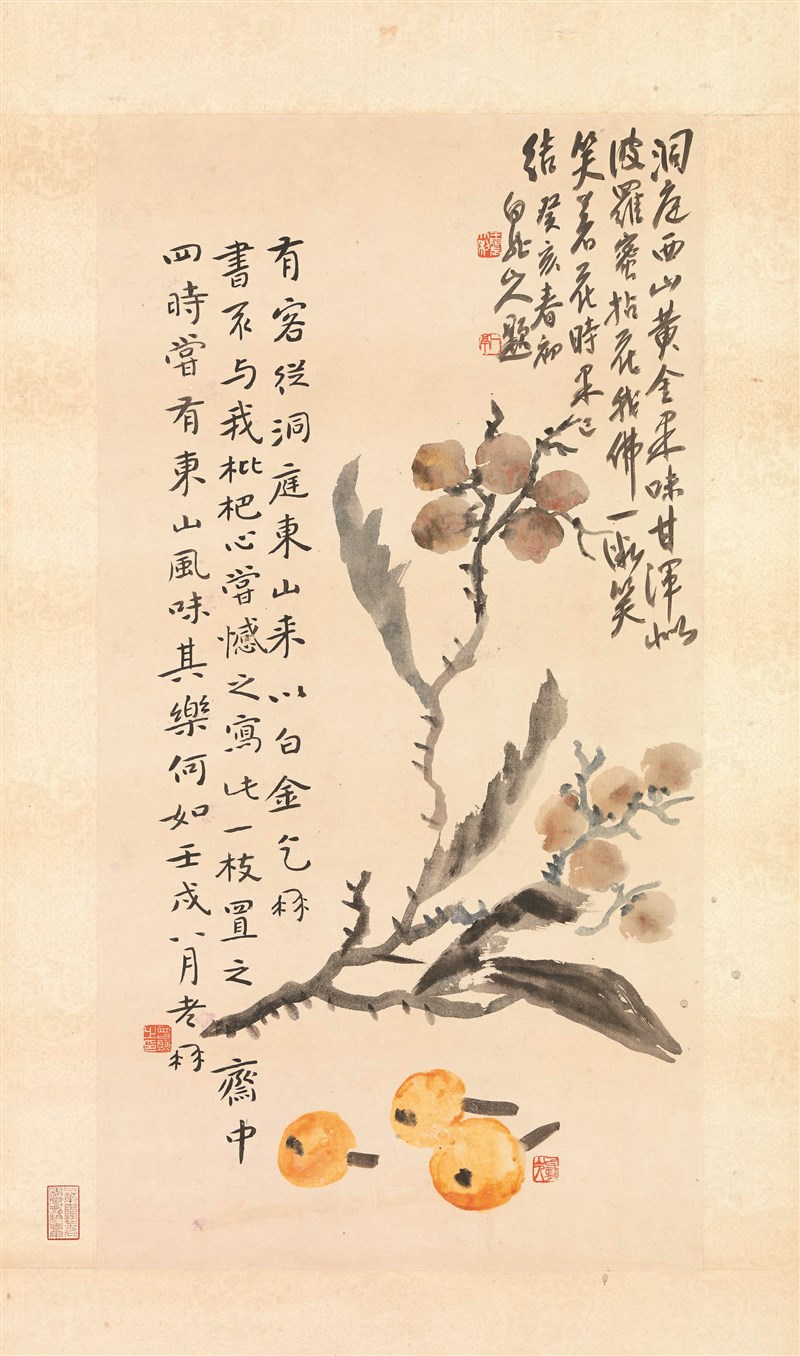 洞庭西山黃金果味甘渾似
波羅蜜拈花我佛一微笑
笑著花時果已
結癸亥春初
白龍山人題
有客從洞庭東山来以白金乞髯
書不与我枇杷心嘗憾之寫此一枝置之齋中
四時嘗有東山風味其樂何如壬戌八月老髯